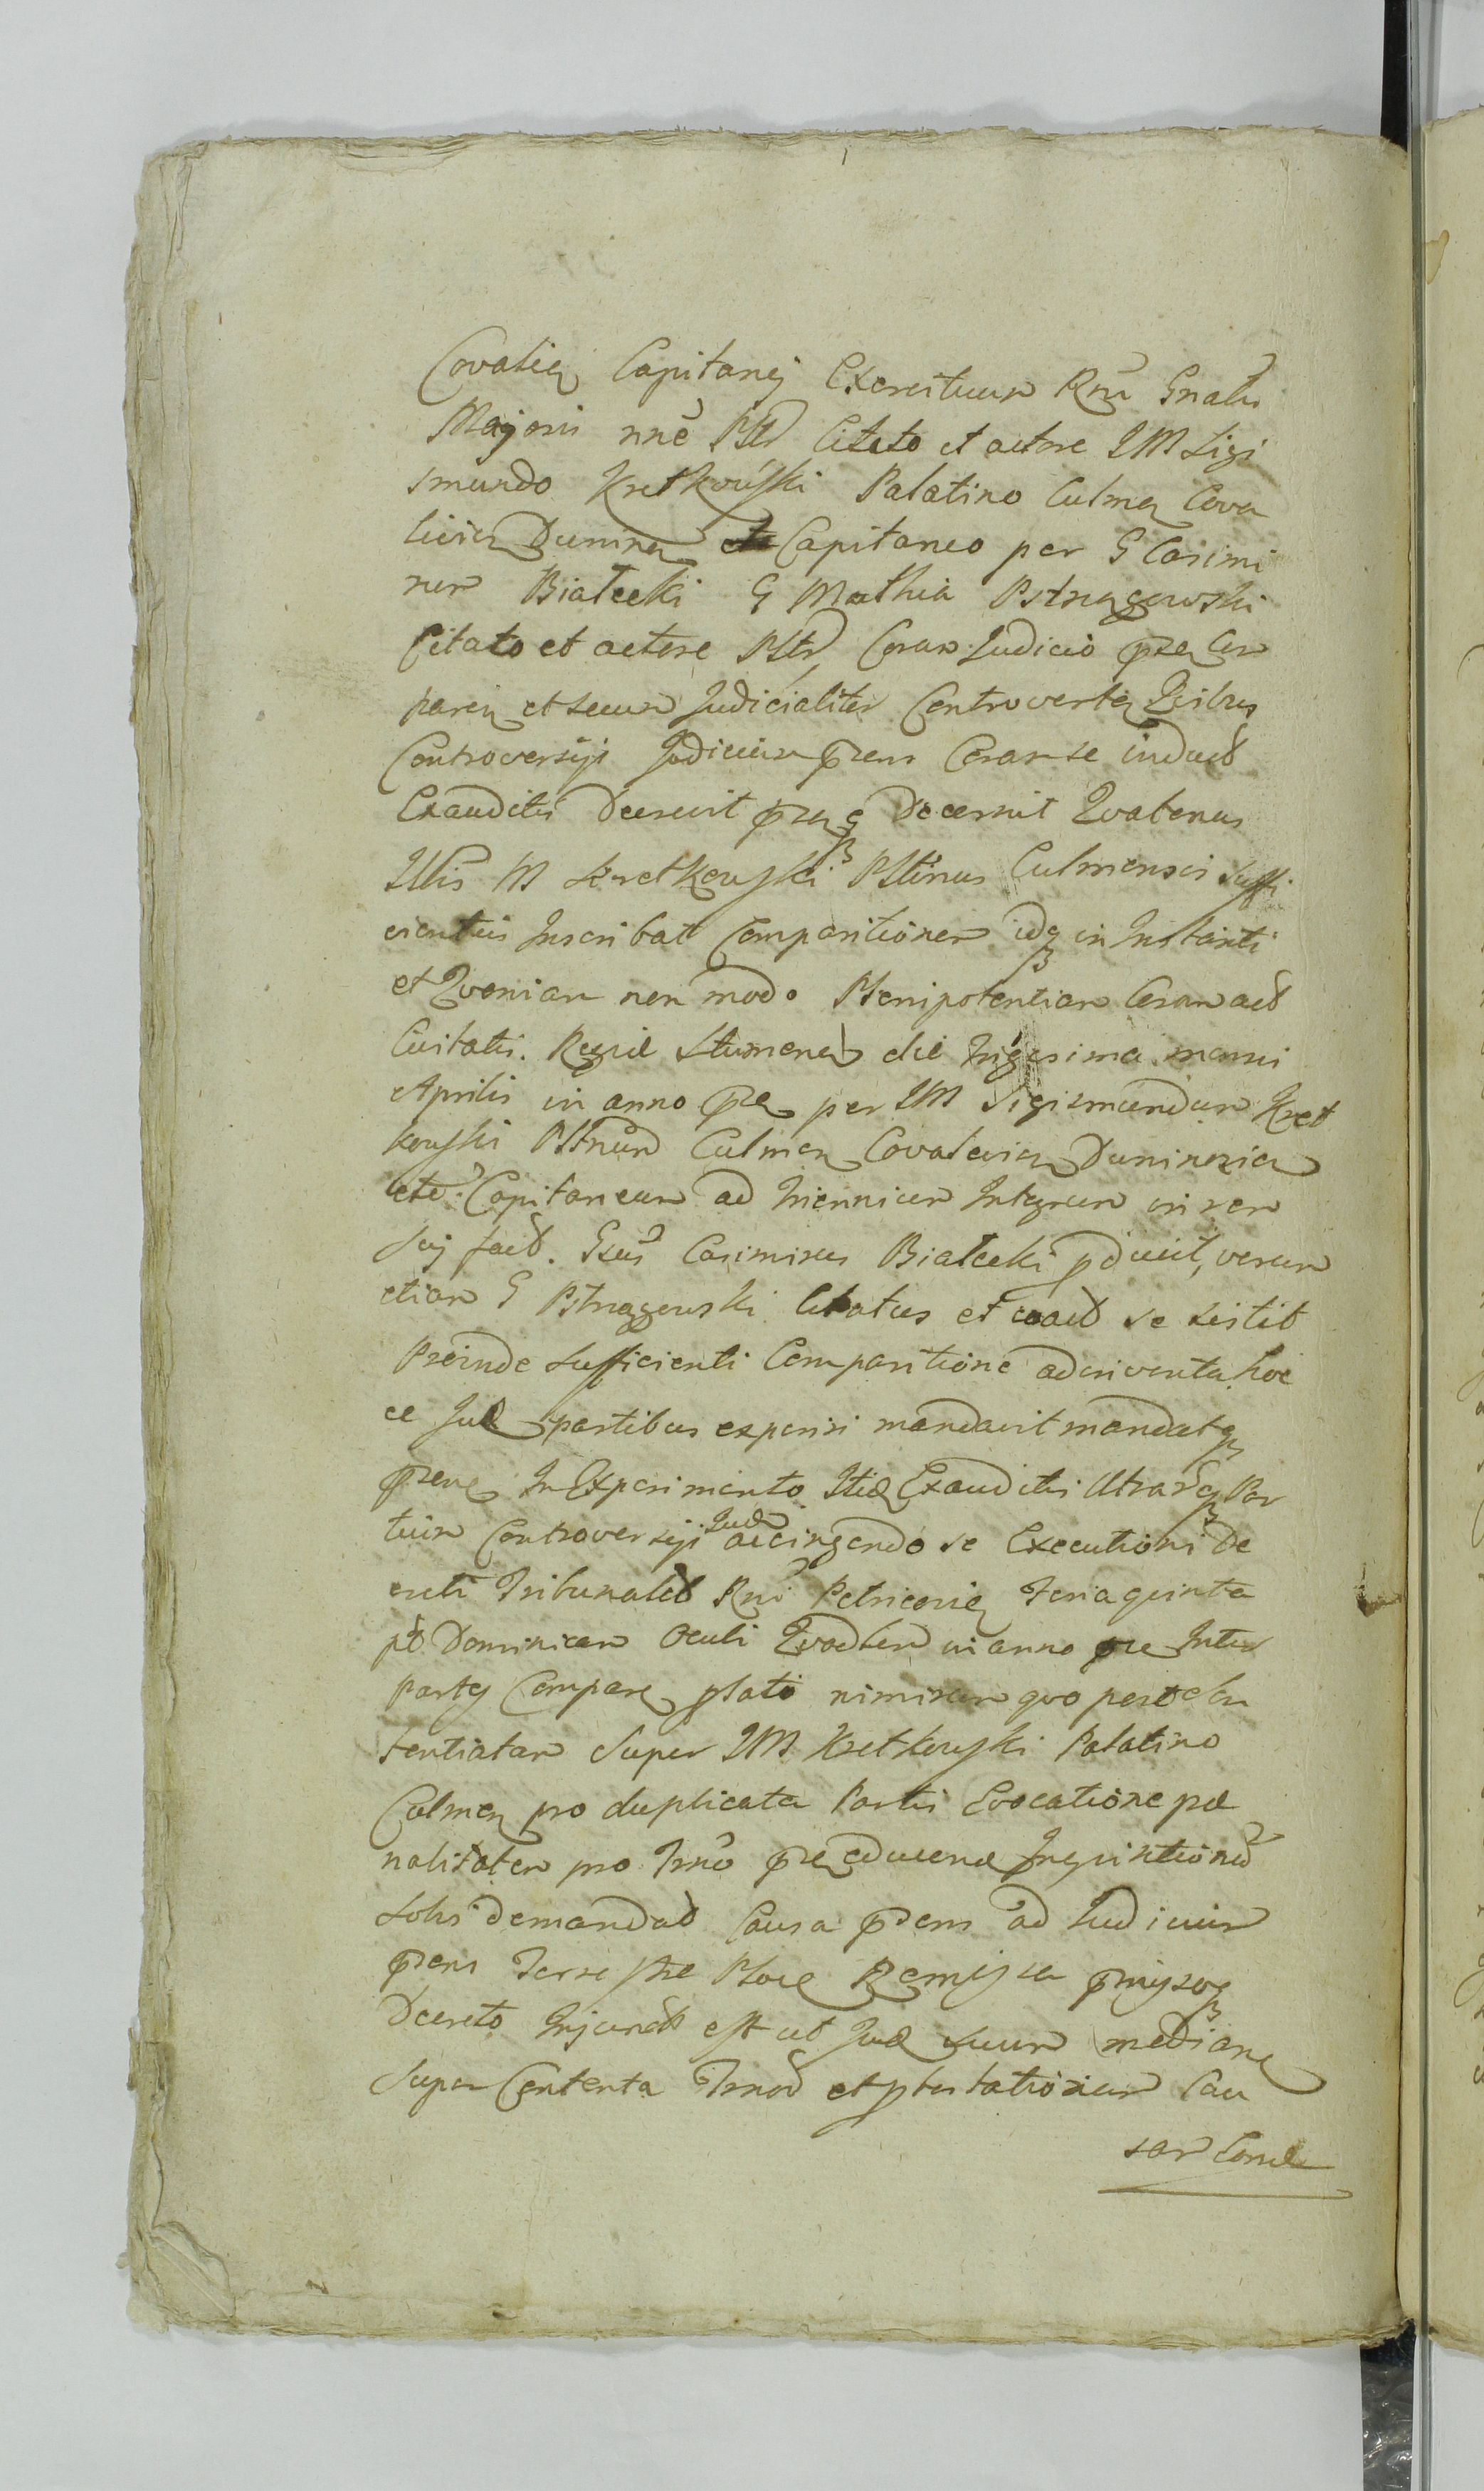 Covalien Capitanej Exercituum Rni Gnalis
Majoris nne Pltr Citato et actore IM Sigi
smundo Kretkowski Palatino Culmen Cova
levien Duninen etc Capitaneo per G Casimi
rum Białecki G Mathia Pstragowski
Citato et actore Pltr Coram Judicio prn Com
paren et secum Judicialiter Controverten Quibus
Controversijs Judicium prens Coram se induct
Exauditis Decrevit prnq Decernit Quatenus
Illris M Kretkowski Pltinus Culmensis suffi
cientius Inscribat Comparitionem idq in Instanti
et Quoniam non modo Plenipotentiam Coram act
Civitatis Regiae die Trigesima mensis
Aprilis in anno prn per IM Sigismundum Kret
kowski Pltnum Culmen Covalevien
etc Capitaneum ad Triennium Integrum in rem
suj fact. Gsus Casimirus Białecki pduxit, verum
etiam G Pstragowski Citatus et coact se sistit
Proinde Sufficienti Comparitione adinventa hoc
ce Jud partibus experiri mandavit mandatq
prens In Experimento Itiq Exauditis Utrarq Par
tium Controversijs Jud accingendo se Executioni De
creti Tribunalis Rni Petricovien Feria quinta
pt Dominicam Oculi Quadlem in anno prn Inter
Partes Comparen plati nimirum quo post
sentiatam Super IM Kretkowski Palatino
Culmen pro duplicata Partis Evocatione pae
nalitatem pro Trno prn educenda Inquisitione
Solis demandat Causa prens ad Judicium
prens Terrestre Remissa pmissoq
Decreto Injunct est ut Jud suum median
Super Contenta Trnor et ptestationum Cau
sam